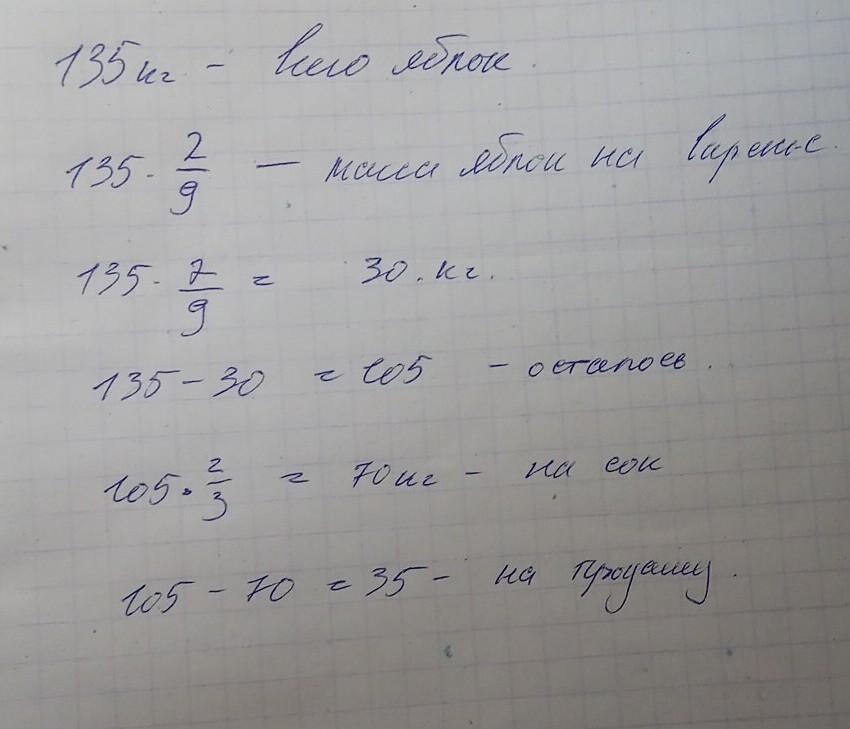 135 кг - всего яблок.
135 · 2/9 — масса яблок на варенье.
135 · 2/9 = 30. кг.
135 - 30 = 105 - осталось.
105 · 2/3 = 70 кг - на сок
105 - 70 = 35 - на продажу.